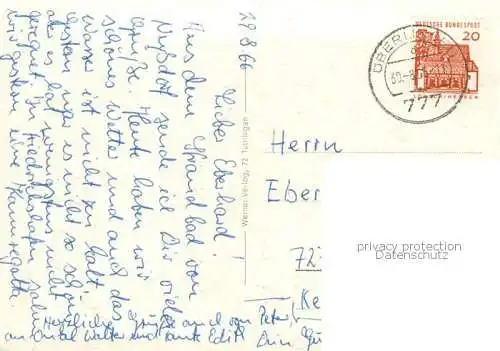 20.8.66
Lieber Eberhard!
Aus dem Strandbad von
Nußdorf sende ich Dir viele
Grüße. Heute haben wir
schönes Wetter und auch das
Wasser ist nicht zu kalt.
Gestern es nicht so schön
es hat wenigstens nicht
geregnet. In Friedrichshafen
eine
Herzliche Grüße auch von Peter,
an Onkel Walter und Tante Edith Dein
Werner-Verlag, 72 Tuttlingen
DEUTSCHE BUNDESPOST
20
777
Herrn
Eber
72
Ke
privacy protection
Datenschutz